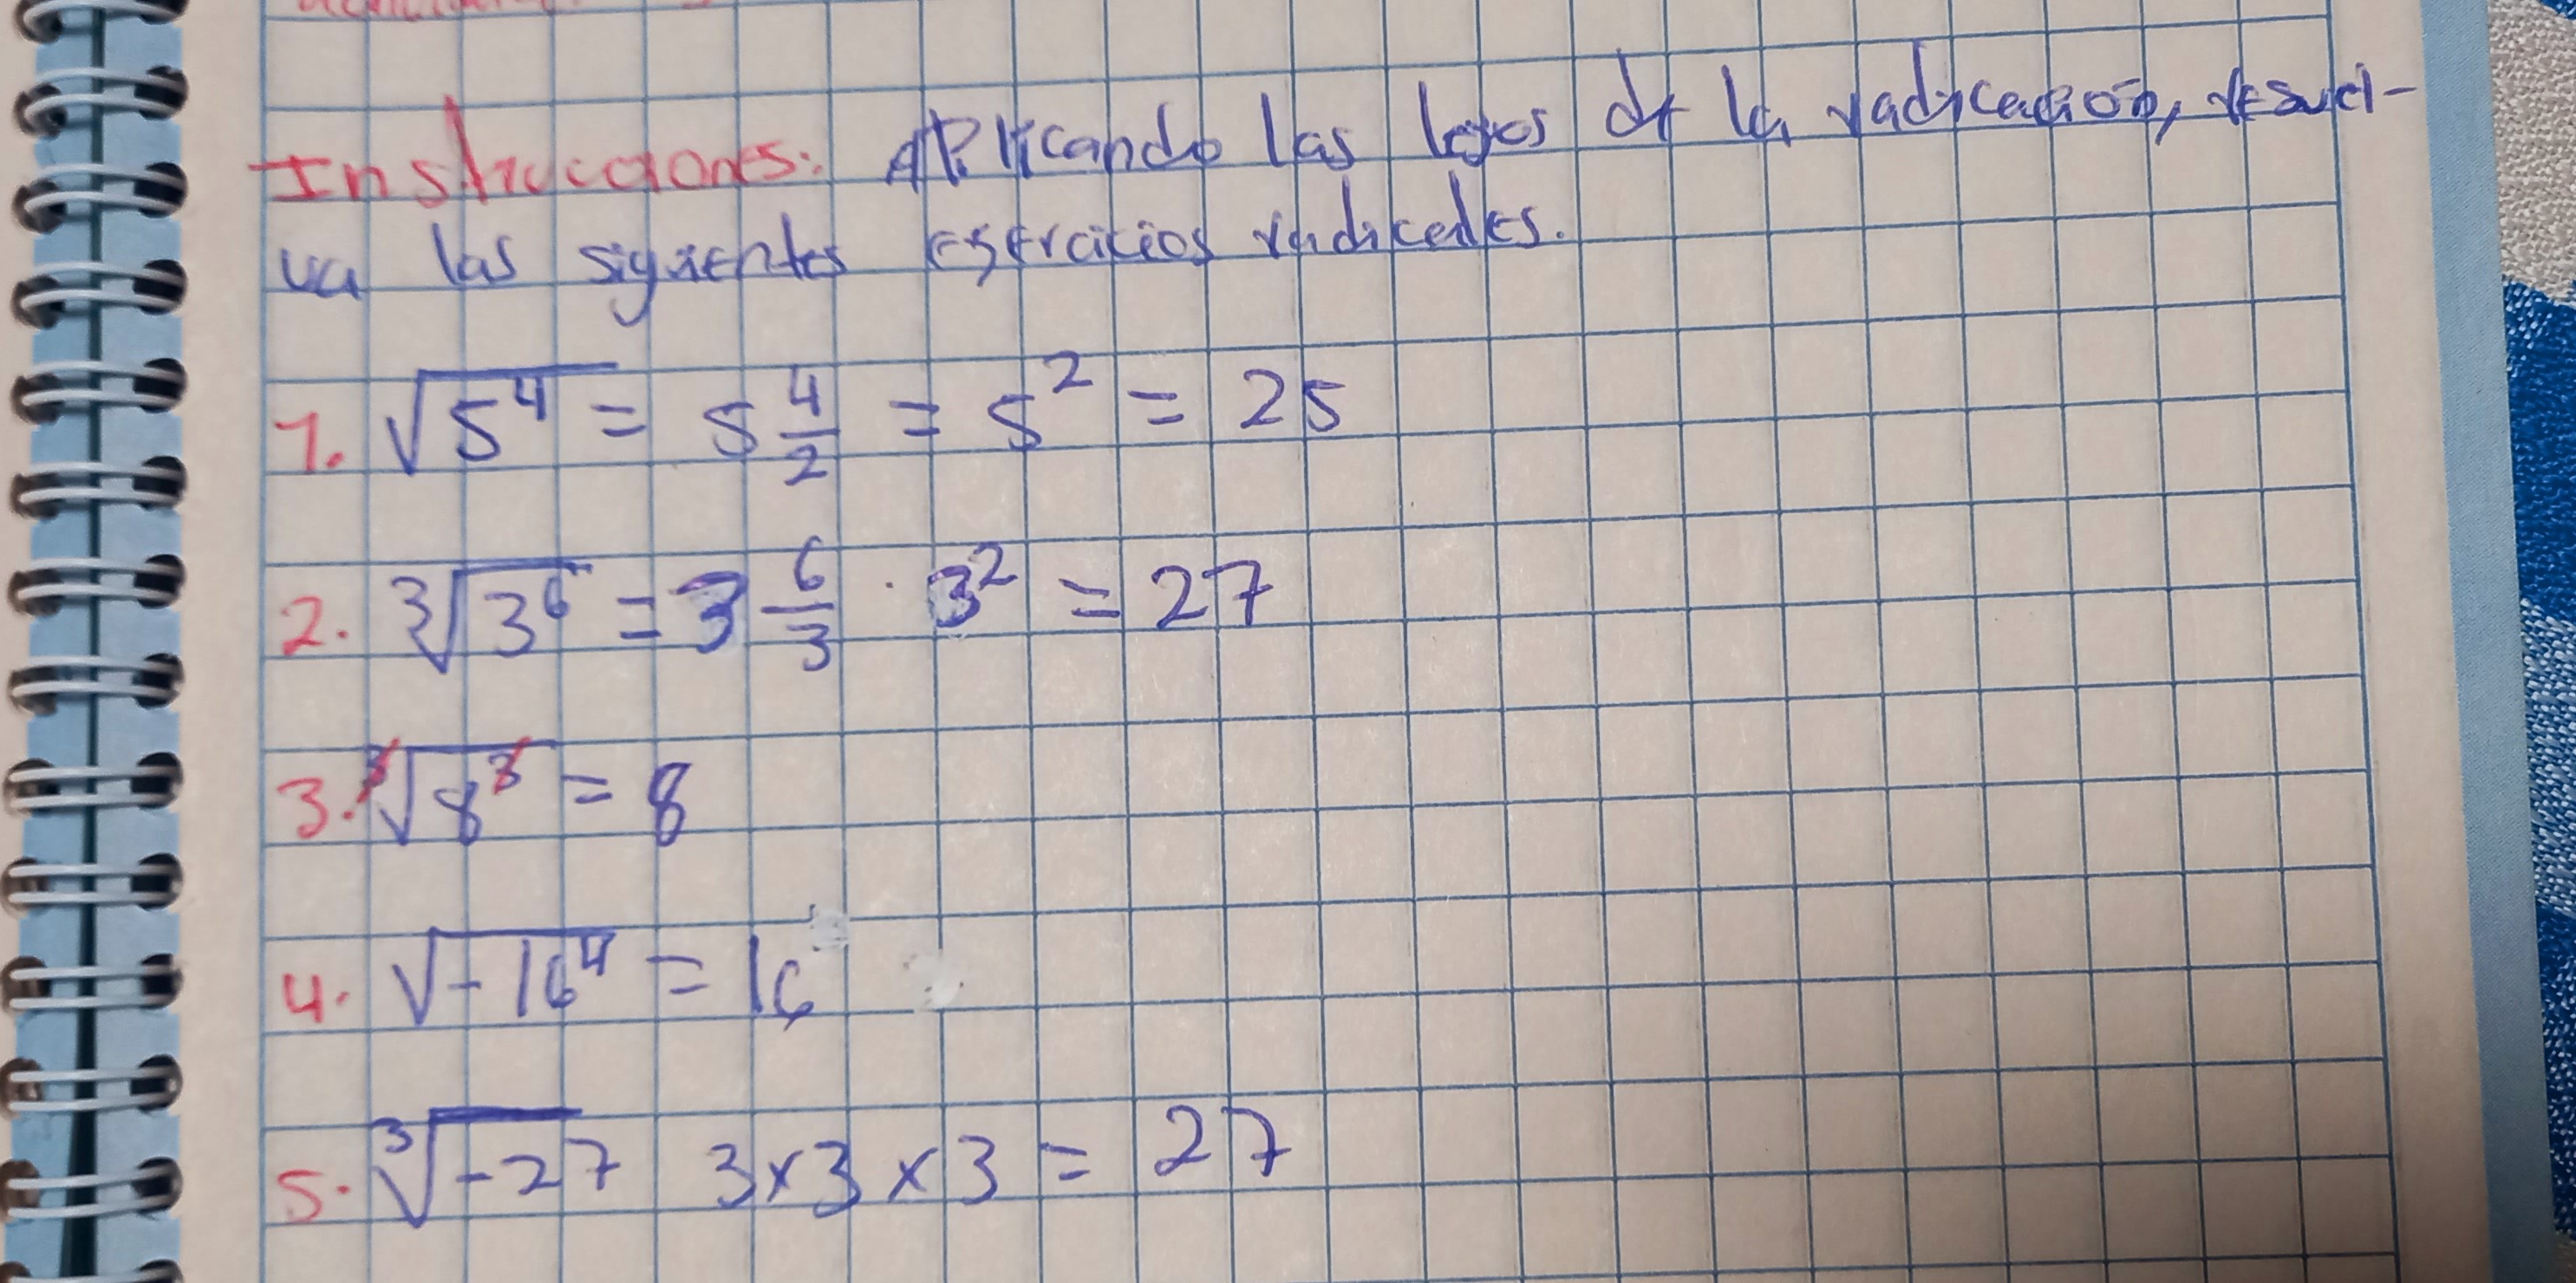 Instrucciones: Aplicando las leyes de la radicación, resuel-
va las siguientes esercicios radicales.
1. √5⁴ = 5 4/2 = 5² = 25
2. ³√3⁶ = 3 6/3 · 3² = 27
3. ³√8³ = 8
4. √-16⁴ = 16
5. ³√-27 3x3x3 = 27